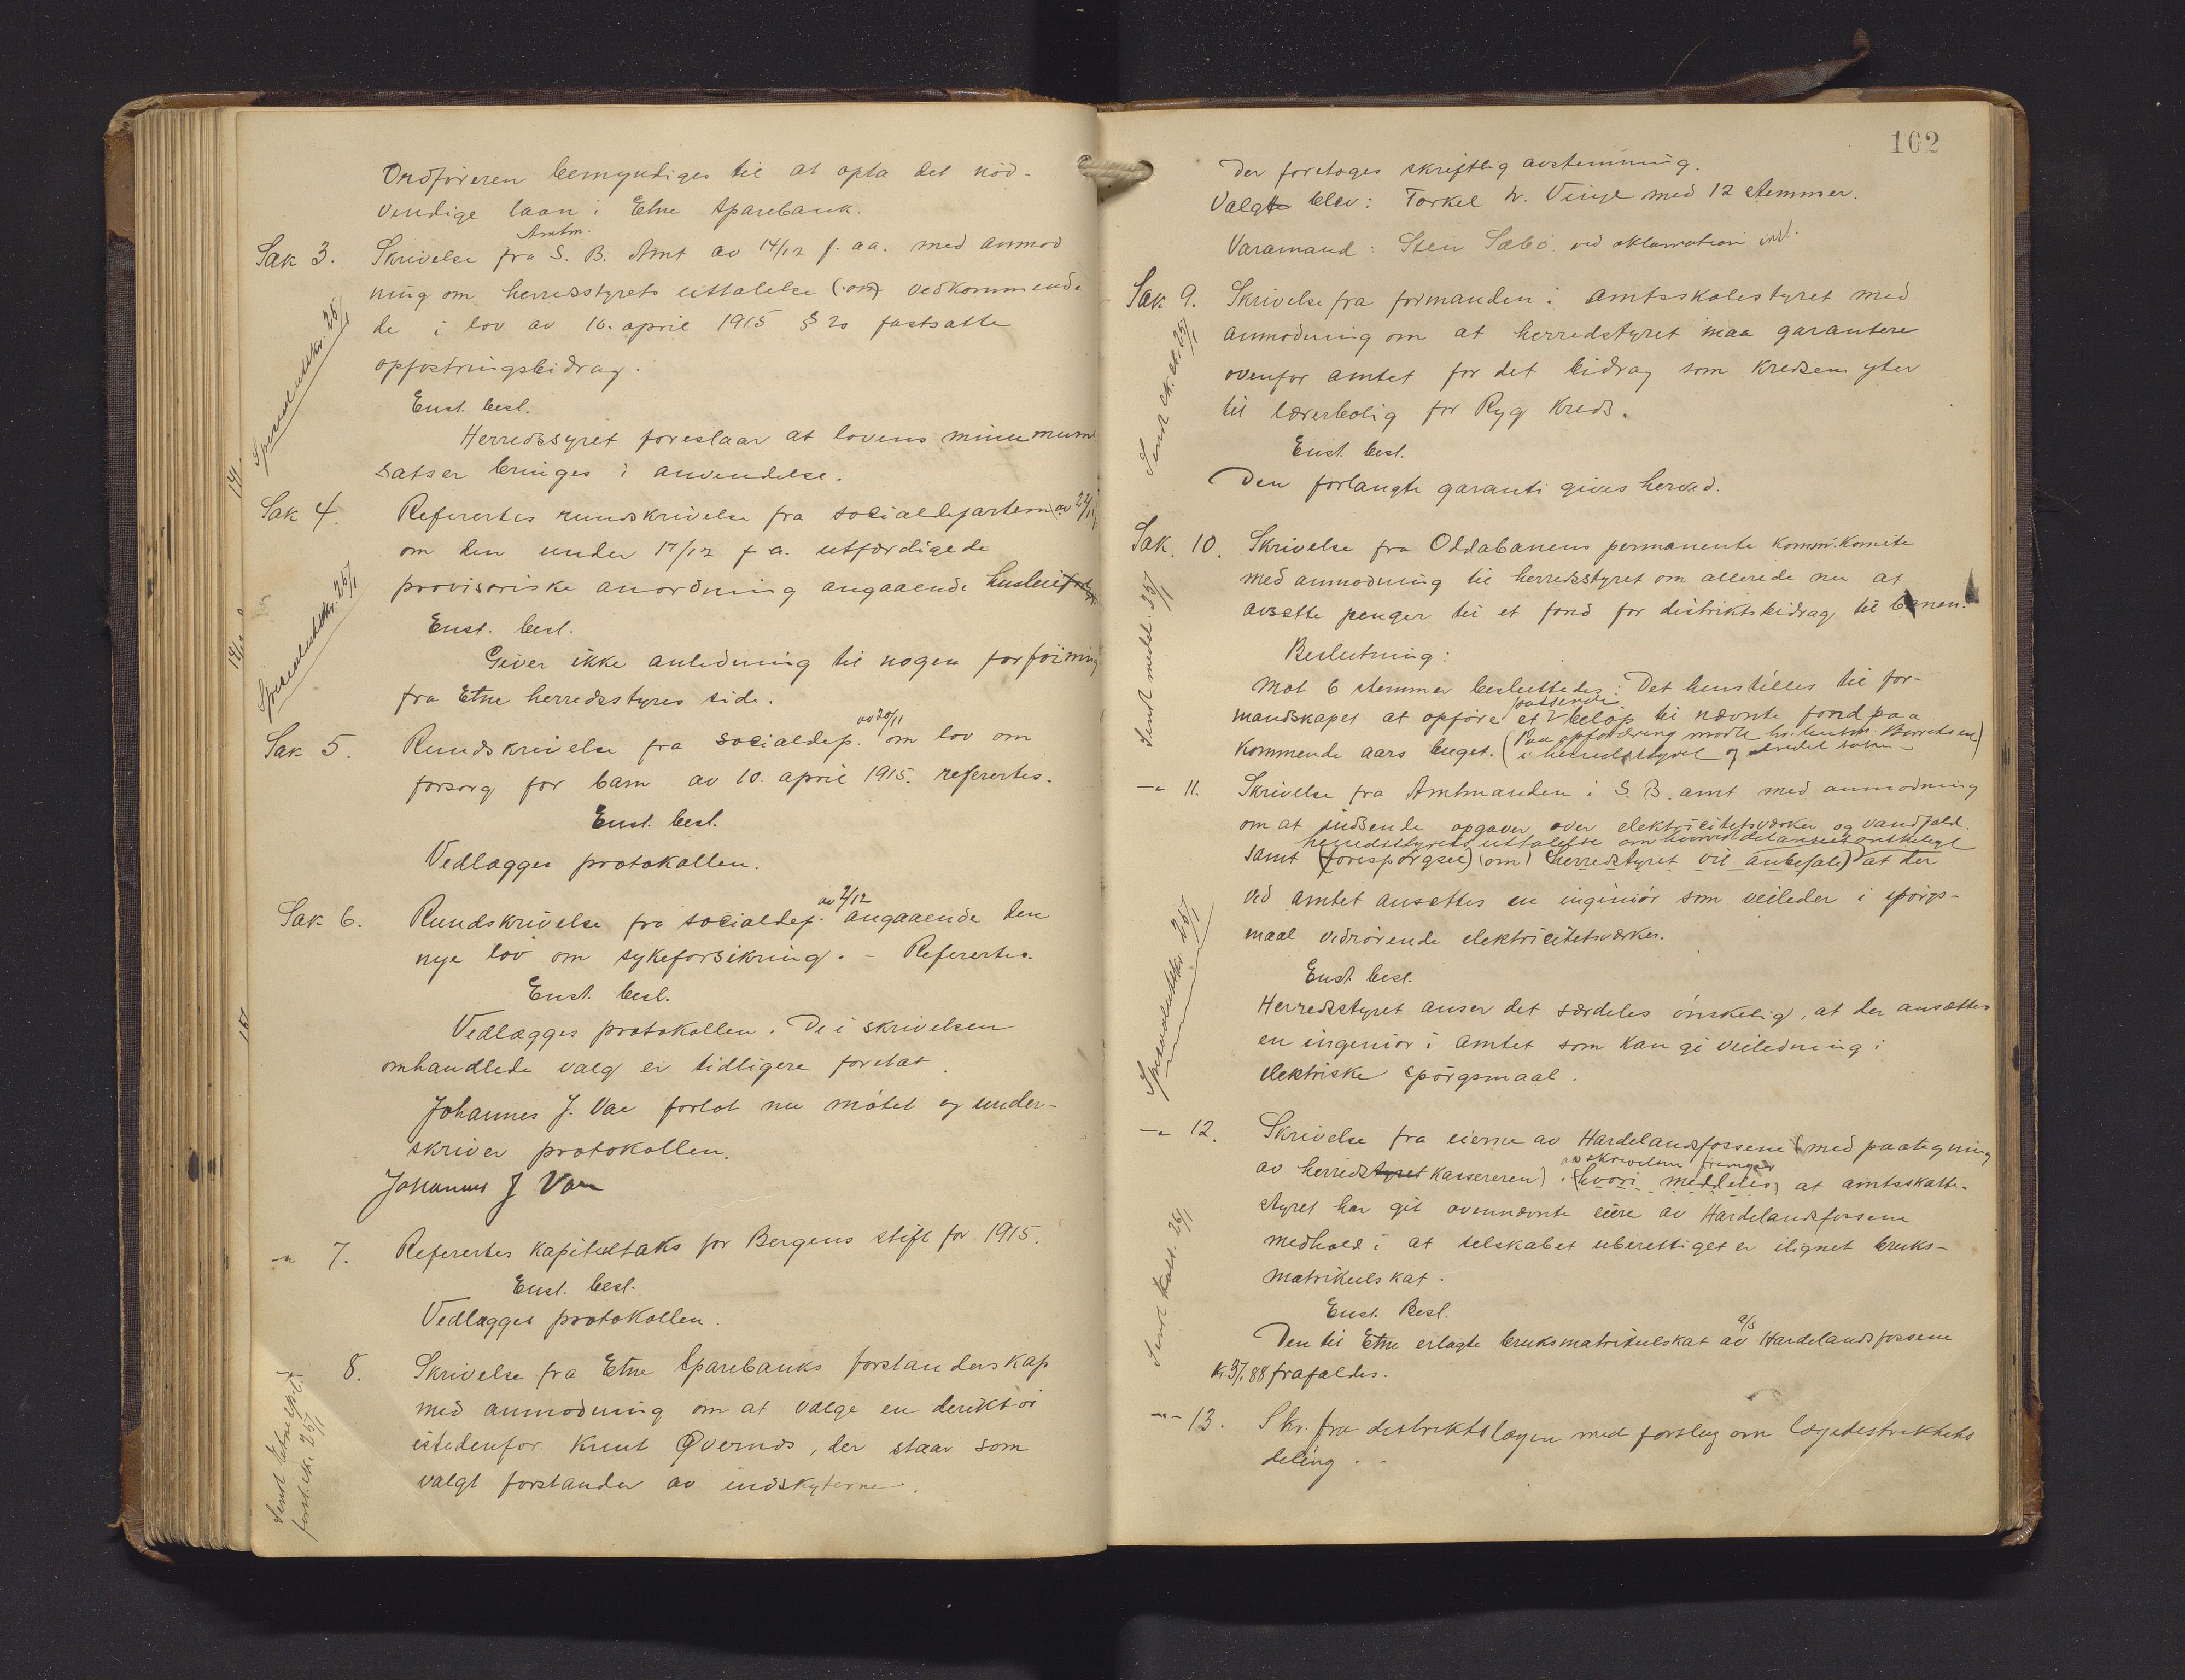 Ordføreren bemyndiges til at opta det nød-
vendige laan i Etne Sparebank.
Amtm.
Sak 3. Skrivelse fra S. B. Amt av 14/12 f. aa. med anmod
ning om herredsstyrets uttalelse (om) vedkommende
de i lov av 10. april 1915 § 20 fastsatte
opfostringsbidrag.
Enst. besl.
Herredssyret foreslaar at lovens minumum
satser bringes i anvendelse.
Sak 4. Referertes rundskrivelse fra socialdepartem. av 22/11
om den under 17/12 f a. utfærdigede
provisoriske anordning angaaende husleie
Enst. besl.
Giver ikke anledning til nogen forføining
fra Etne herredsstyres side.
av 20/11
Sak 5. Rundskrivelse fra socialdep. om lov om
forsorg for barn av 10. april 1915. referertes.
Enst. besl.
Vedlægges protokollen.
av 2/12
Sak 6. Rundskrivelse fra socialdep. angaaende den
nye lov om sykeforsikring. - Referertes.
Enst. besl.
Vedlægges protokollen. De i skrivelsen
omhandlede valg er tidligere foretat.
Johannes J. Vae forlot nu møtet og under-
skriver protokollen.
Johannes J Vae
-"- 7. Referertes kapiteltakst for Bergens stift for 1915.
Enst. besl.
Vedlægges protokollen.
8. Skrivelse fra Etne Sparebanks forstanderskap
med anmodning om at vælge en derektør
istedenfor Knut Qvernes, der staar som
valgt forstander av indskyterne.
Sendt Etne spb.
forst.ek. 25/1
102
Der foretoges skriftlig avstemning.
Valgt blev: Torkel H. Vinje med 12 stemmer.
Varamand: Sten Sæbø. ved aklamation
Sak 9. Skrivelse fra formanden i amtsskolestyret med
anmodning om at herredstyret maa garantere
ovenfor amtet for det bidrag som kredsen yter
til lærerbolig for Ryg Kreds.
Enst. besl.
Den forlangte garanti gives herved.
Sak. 10. Skrivelse fra Oddabanens permanente komm. komite
med anmodning til herredsstyret om allerede nu at
avsette penger til et fond for distriktsbidrag til banen.
Beslutning:
Mot 6 stemmer besluttedes: Det henstilles til for-
passende
mandskapet at opføre et beløp til nævnte fond paa
kommende aars buget. (Paa opfordring møtte hr. lensm. Borretsen
i herredsstyret og
-"- 11. Skrivelse fra Amtmanden i S. B. amt med anmodning
om at indsende opgaver over elektricitetsværker og vandfald.
herredsstyrets uttalelse om hvorvidt det ansees ønskeligt
samt (forespørgsel) (om) (herredstyret vil anbefale) at der
ved amtet ansættes en ingeniør som veileder i spørgs-
maal vedrørende elektricitetsverker.
Enst besl.
Herredsstyret anser det særdeles ønskelig, at der ansættes
en ingeniør i amtet som kan gi veiledning i
elektriske spørgsmaal.
-"- 12. Skrivelse fra eierne av Hardelandsfossene (med paategning
av skrivelsen fremgaar
av herredstyret kassereren). (hvori meddeles) at amtsskatte-
styret har git ovennævnte eiere av Hardelandsfossene
medhold i at selskabet uberettiget er ilignet bruks-
matrikulskat.
Enst. Besl.
a/s
Den til Etne erlagte bruksmatrikulskat av Hardelandsfossene
kr. 37.88 frafaldes.
-"- 13. Skr. fra distriktslægen med forslag om lægedistriktets
deling. -